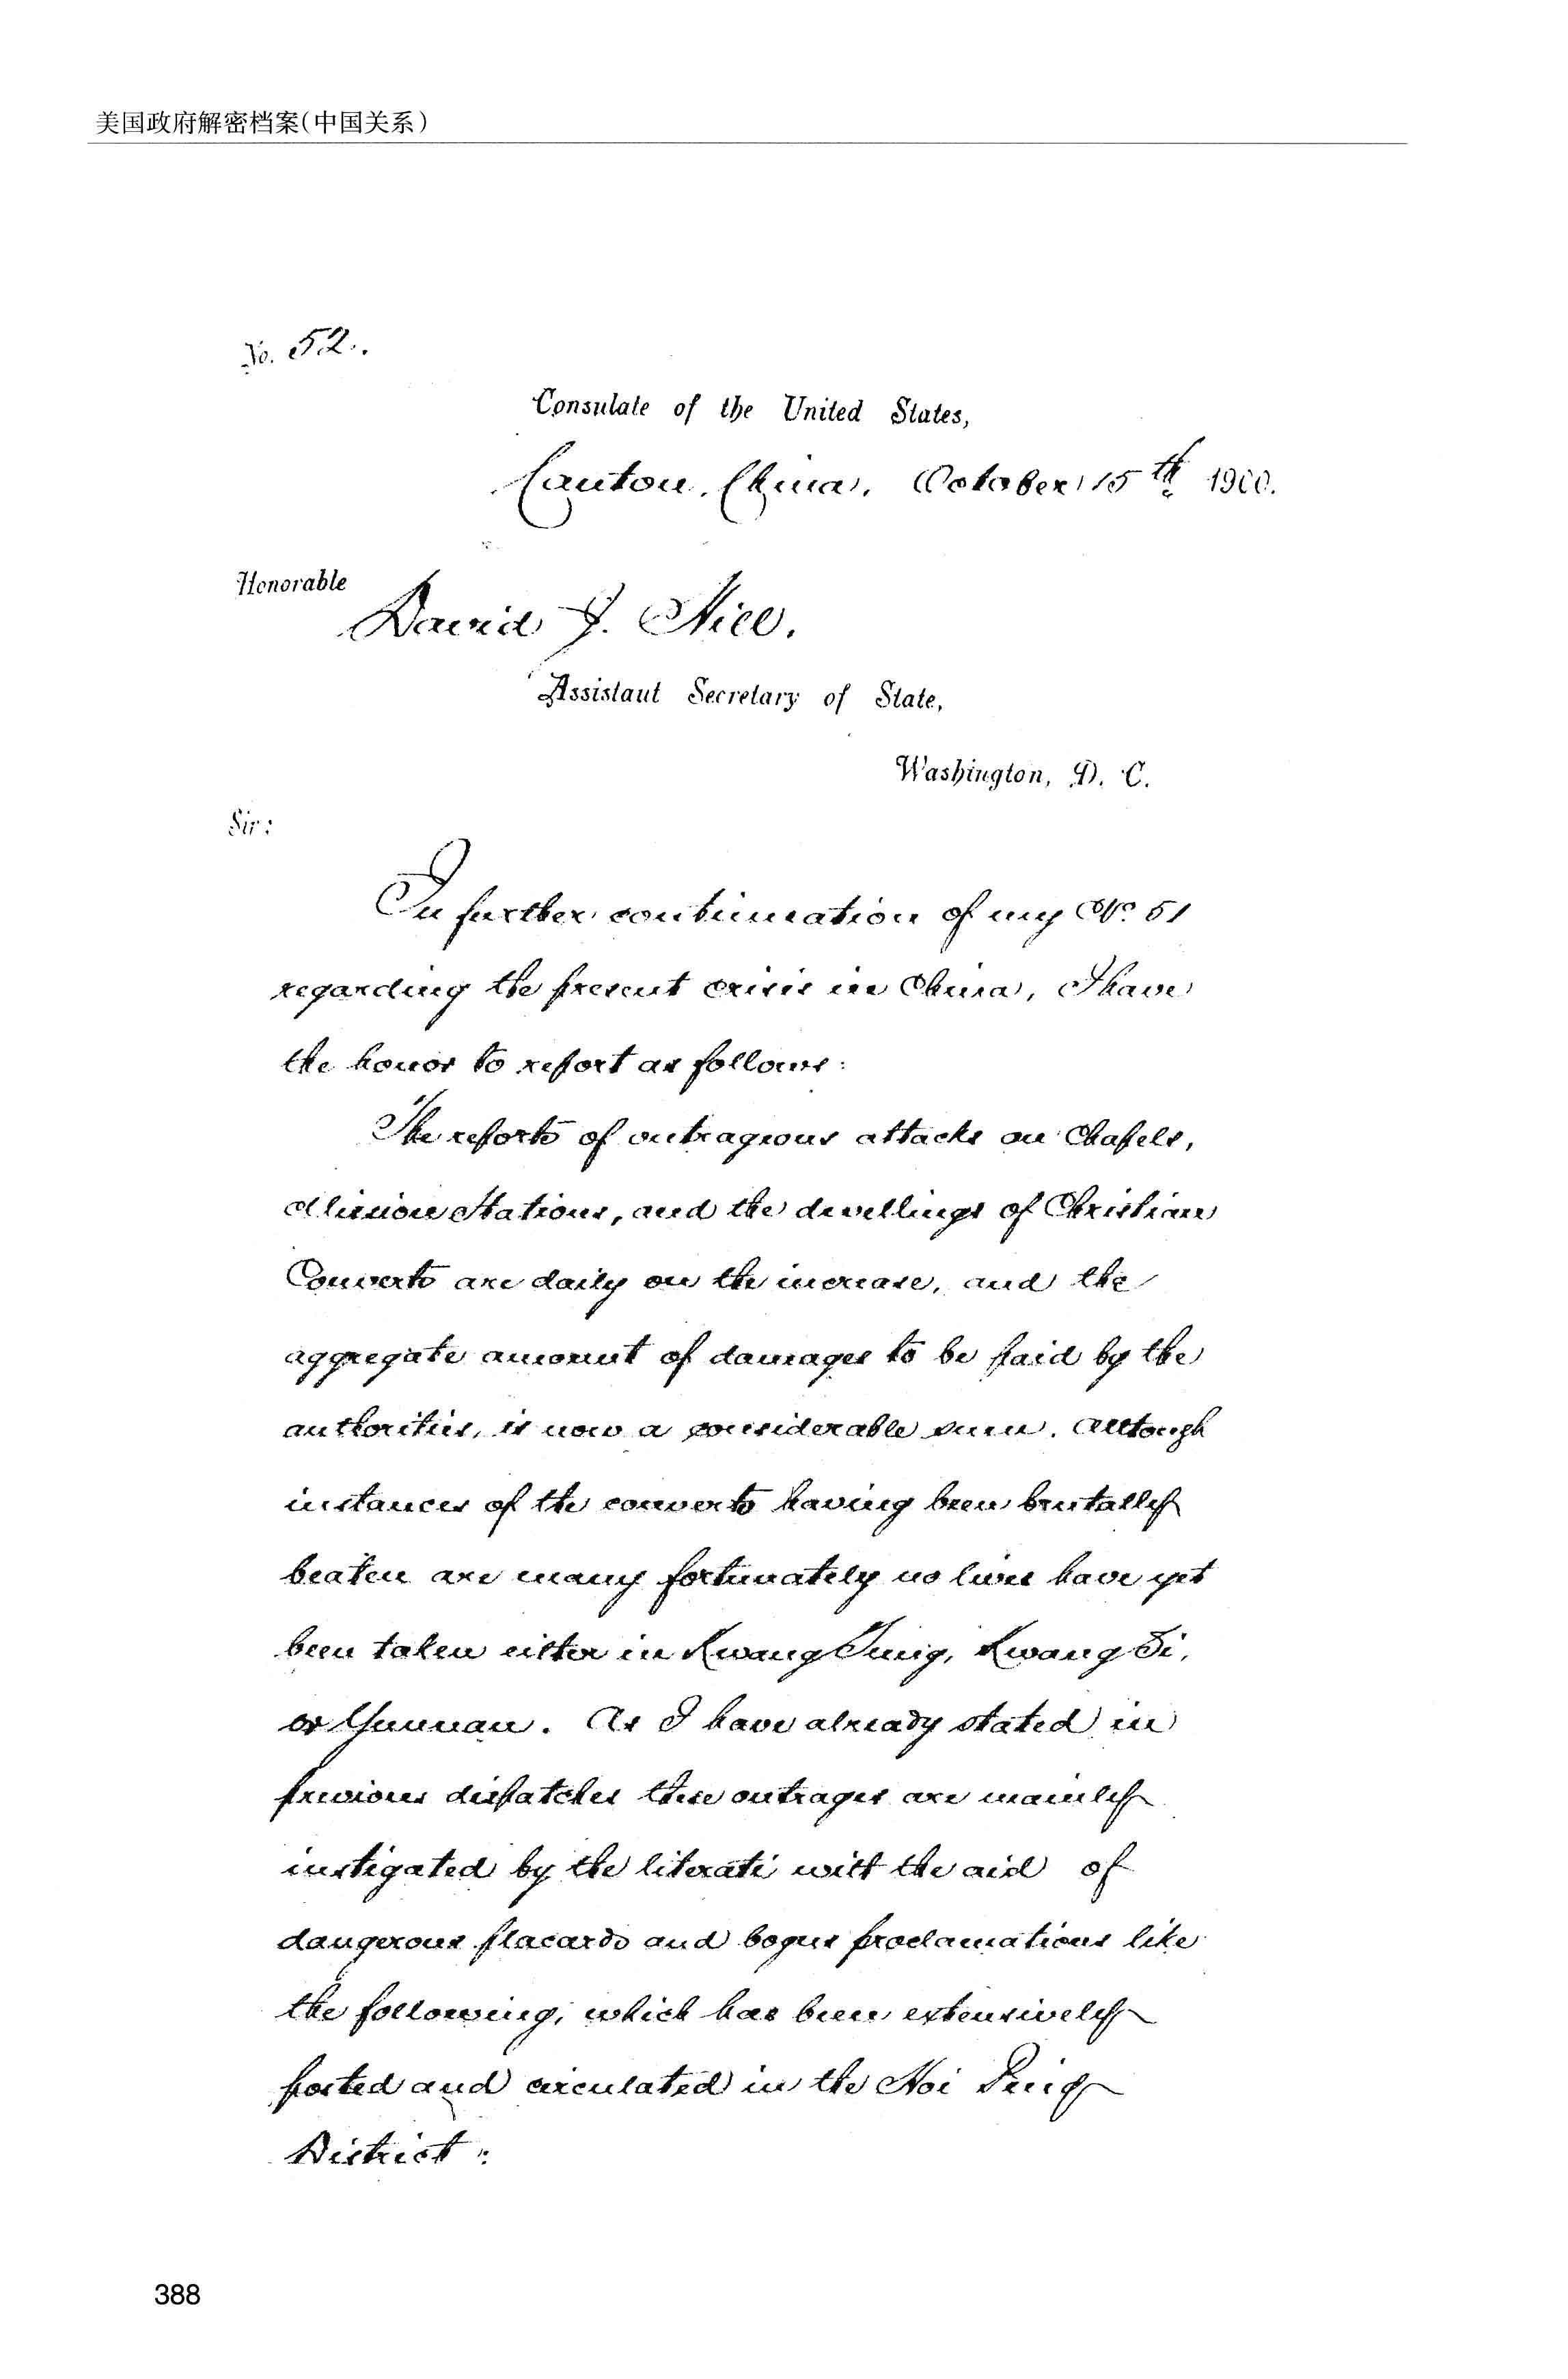 美国政府解密档案(中国关系)
No. 52.
Consulate of the United States,
Canton, China, October 15th 1900.
Honorable
David J. Hill,
Assistant Secretary of State,
Washington, D. C.
Sir:
In further continuation of my No. 51
regarding the present crisis in China, I have
the honor to report as follows:
The reports of outrageous attacks on Chapels,
Mission Stations, and the dwellings of Christian
Converts are daily on the increase, and the
aggregate amount of damages to be paid by the
authorities, is now a considerable sum. Altough
instances of the converts having been brutally
beaten are many fortunately no lives have yet
been taken either in Kwang Tung, Kwang Si,
or Yunnan. As I have already stated in
previous dispatches these outrages are mainly
instigated by the literati with the aid of
dangerous placards and bogus proclamations like
the following, which has been extensively
posted and circulated in the Hoi Ping
District:
388